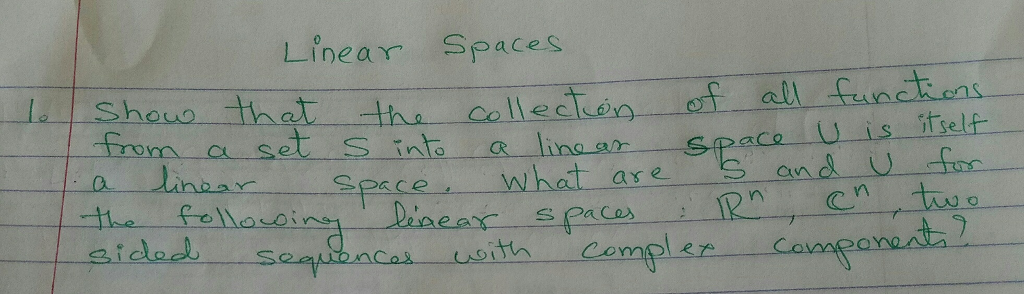 Linear Spaces
1. Show that the collection of all functions
from a set S into a linear space U is itself
a linear space. What are S and U for
the following linear spaces : ℝⁿ, ℂⁿ, two
sided sequences with complex components?